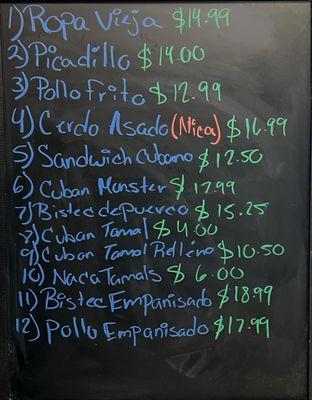 1) Ropa Vieja $14.99
2) Picadillo $14.00
3) Pollo frito $12.99
4) Cerdo Asado (Nica) $16.99
5) Sandwich Cubano $12.50
6) Cuban Monster $17.99
7) Bistec de puerco $15.25
8) Cuban Tamal $4.00
9) Cuban Tamal Relleno $10.50
10) Naca Tamals $6.00
11) Bistec Empanisado $18.99
12) Pollo Empanisado $17.99